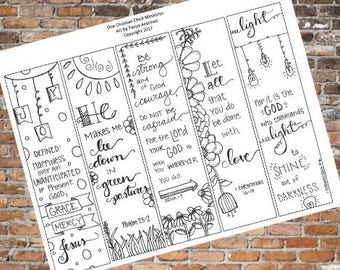 One Christian Chick Ministries
Art by Tonya Andrews
Copyright 2017
DEFINED:
HAPPINESS
over AN
UNANTICIPATED
or Present
GOOD.
GRACE
MERCY
Jesus
He
MAKES ME
lie
down
IN
green
pastures
Psalm 23:2
Be
strong
and of
Good
courage.
DO NOT BE
afraid
For the LORD
YOUR
GOD is
with YOU
WHEREVER
YOU GO.
Let
all
that
YOU do
BE done
with
love
1 CORINTHIANS
16:14
light
For it is
the
GOD
who commands
light
to
SHINE
out of
DARKNESS